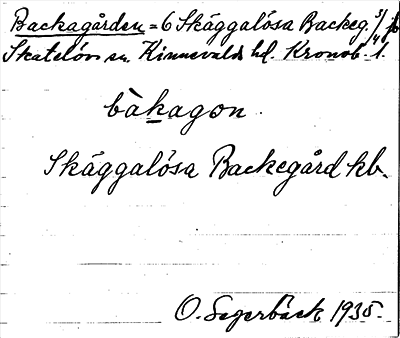 Backagården = 6 Skäggalösa Backeg. 3/4
Skatelöv sn. Kinnevalds hd. Kronob. l.
bàkagon.
Skäggalösa Backegård kb.
O. Segerbäck 1935.